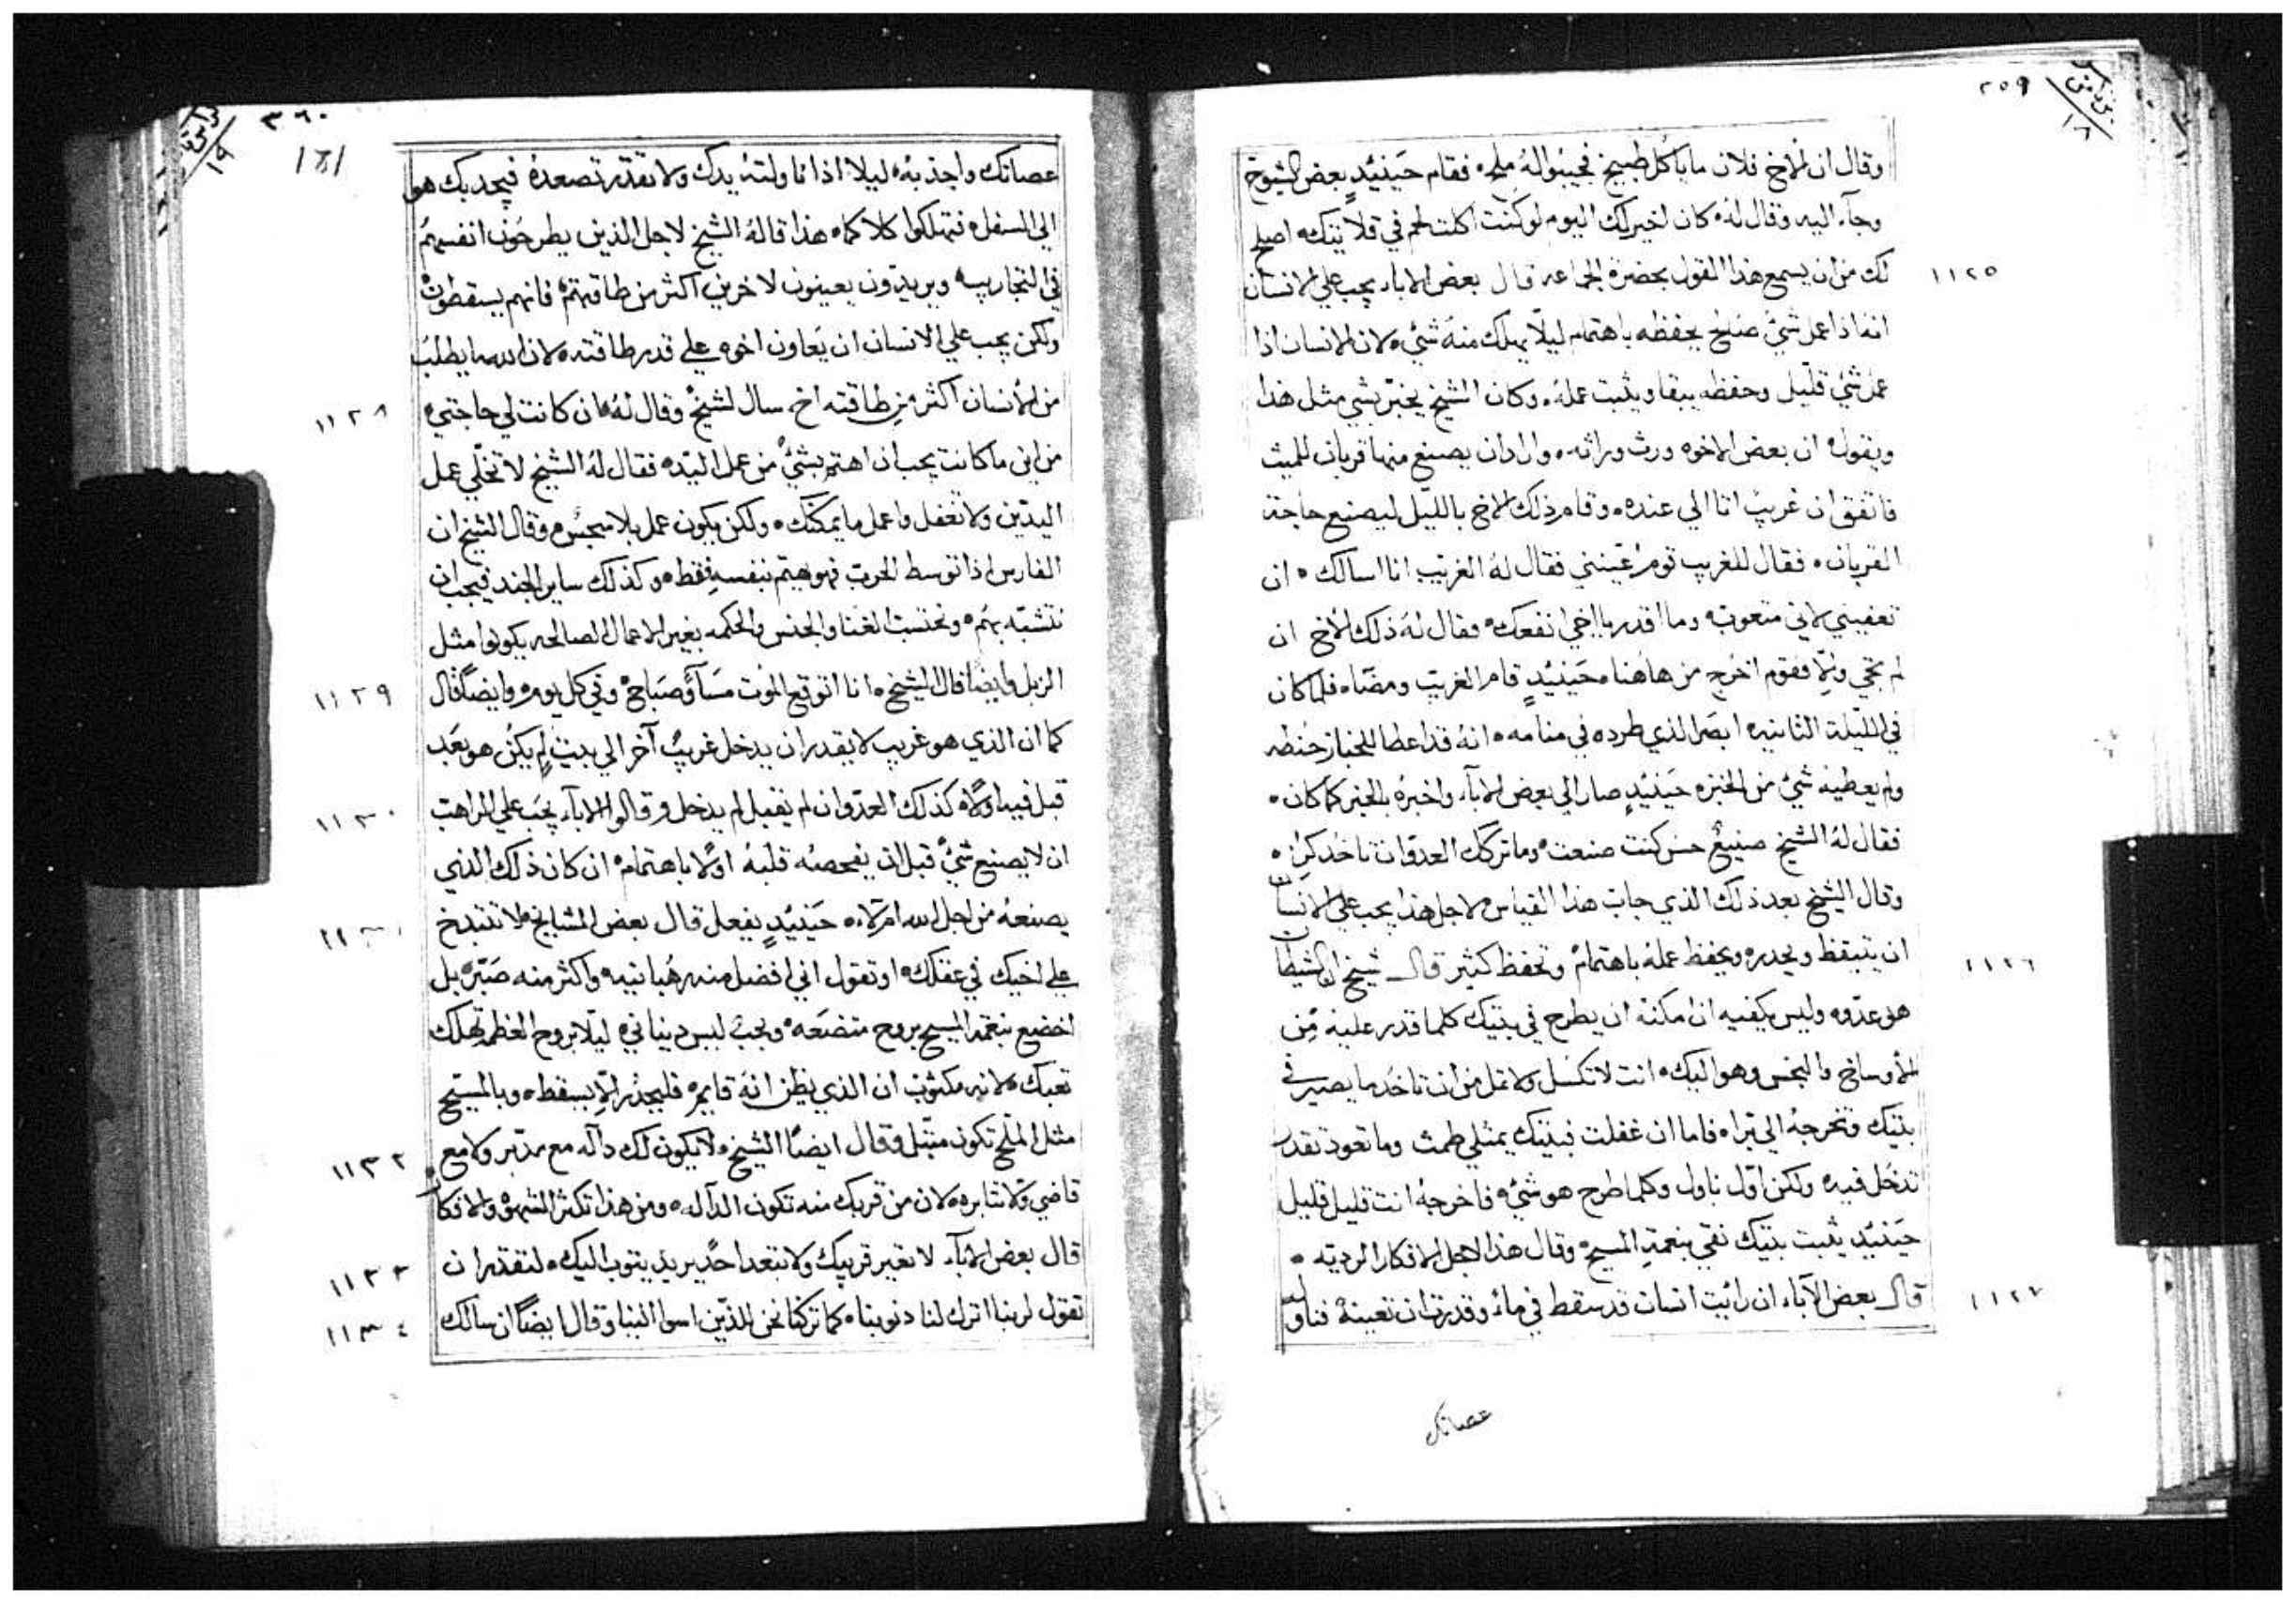 ٣٥٩
وقال ان الاخ فلان ما ياكل طبيخ فجيبوا له ملح فقام حينيدٍ بعض الشيوخ
وجاء اليه وقال له كان اخير لك اليوم لو كنت اكلت لحم في قلايتك اصلح
١١٢٥
لك من ان يسمع هذا القول بحضرة الجماعه قال بعض الاباء يجب علي الانسان
انه اذا عمل شي صالح يحفظه باهتمام ليلّا يهلك منه شيء لان الانسان اذا
عمل شي قليل وحفظه يبقا ويثبت عمله وكان الشيخ يخبر بشي مثل هذا
ويقول ان بعض الاخوه ورث وراثه واراد ان يصنع منها قربان للميت
فاتفق ان غريب اتا الي عنده وقام ذلك الاخ بالليل ليصنع حاجة
القربان فقال للغريب قوم عينني فقال له الغريب انا اسالك ان
تعفيني لاني متعوب وما اقدر يا اخي انفعك فقال له ذلك الاخ ان
لم تجي والّا فقوم اخرج من هاهنا حينيدٍ قام الغريب ومضا فلما كان
في الليلة الثانيه ابصر الذي طرده في منامه انه قد اعطا للخباز حنطه
ولم يعطيه شي من الخبز حينيدٍ صار الي بعض الاباء واخبره بالخبر كما كان
فقال له الشيخ صنيعٌ حسن كنت صنعت وما تركك العدو ان تاخد كراه
وقال الشيخ بعد ذلك الذي جاب هذا القياس لاجل هذا يجب علي الانسان
١١٢٦
ان يتيقظ ويحدر ويحفظ عمله باهتمام وتحفظ كثير قال شيخ ان الشيطان
هو عدوه وليس يكفيه ان امكنه ان يطرح في بيتك كلما قدر عليه من
الاوساخ والنجس وهو اليك انت لا تكسل ولا تمل من ان تاخد ما يصير في
بيتك وتخرجه الي برا فاما ان غفلت فبيتك يمتلي طمث وما تعود تقدر
تدخل فيه ولكن اول باول وكلما طرح هو شيء فاخرجه انت قليل قليل
حينيدٍ يثبت بيتك نقي بنعمة المسيح وقال هذا لاجل الافكار الرديه
١١٢٧
قال بعض الآباء ان رائيت انسان قد سقط في ماء وقدرت ان تعينه فناوله
عصاتك
٣٦٠
عصاتك واجذبه ليلا اذا ناولته يدك ولا تقدر تصعده فيجدبك هو
الي السفل فتهلكوا كلاكما هذا قاله الشيخ لاجل الذين يطرحون انفسهم
في التجاريب ويريدون يعينون لاخرين اكثر من طاقتهم فانهم يسقطون
ولكن يجب علي الانسان ان يعاون اخوه علي قدر طاقته لان الله ما يطلب
١١٢٨
من الانسان اكثر من طاقته اخ سال لشيخ وقال له ان كانت لي حاجتي
من اين ما كانت يجب ان اهتم بشيء من عمل اليد فقال له الشيخ لا تخلي عمل
اليدين ولا تغفل واعمل ما يمكنك ولكن يكون عمل بلا سجس وقال الشيخ ان
الفارس اذا توسط الحرب فهو يهتم بنفسه فقط وكذلك ساير الجند فيجب ان
نتشبه بهم ونحتسب الغنا والجنس والحكمه بغير الاعمال الصالحه يكونوا مثل
١١٢٩
الزبل وايضًا قال الشيخ انا اتوقع الموت مسآءً وصباح وفي كل يوم وايضًا قال
كما ان الذي هو غريب لا يقدر ان يدخل غريبٌ آخر الي بيت لم يكن هو بعد
١١٣٠
قبل فيه اولًا كذلك العدو ان لم يقبل لم يدخل وقالوا الاباء يجب علي الراهب
ان لا يصنع شيء قبل ان يفحصه قلبه اولًا باهتمام ان كان ذلك الذي
١١٣١
يصنعه من اجل الله ام لا حينيدٍ يفعل قال بعض المشايخ لا تتبدخ
علي اخيك في عقلك او تقول اني افضل منه رهبانيه واكثر منه صبر بل
اخضع بنعمة المسيح بروح متضعه وبحب ليس دنياني ليلّا بروح العظمه تهلك
تعبك لانه مكتوب ان الذي يظن انه قايم فليحذر لألّا يسقط وبالمسيح
١١٣٢
مثل الملح تكون متبل وقال ايضًا الشيخ لا يكون لك دآله مع مدبر ولا مع
قاضي ولا تثابره لان من قربك منه تكون الدآله ومن هذا تكثر الشهوة والافكار
١١٣٣
قال بعض الاباء لا تعير قريبك ولا تبعد احدٍ يريد يتوب اليك لتقدر ان
١١٣٤
تقول لربنا اترك لنا دنوبنا كما تركنا نحن للذين اسوا الينا وقال ايضًا ان سالك